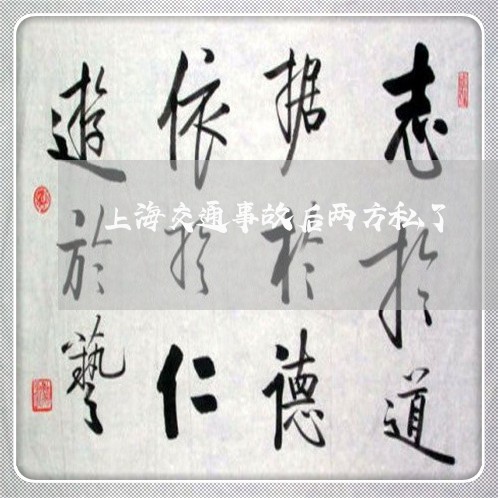 志於道
据於德
依於仁
遊於藝
上海交通事故后两方私了